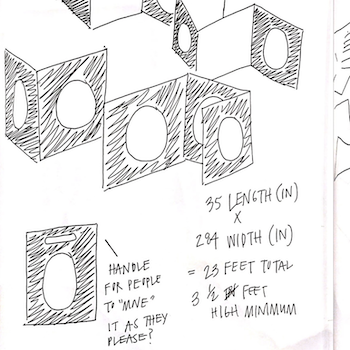 35 LENGTH (IN)
X
284 WIDTH (IN)
= 23 FEET TOTAL
3 ½ FEET
HIGH MINIMUM
HANDLE
FOR PEOPLE
TO "MNE"
IT AS THEY
PLEASE?